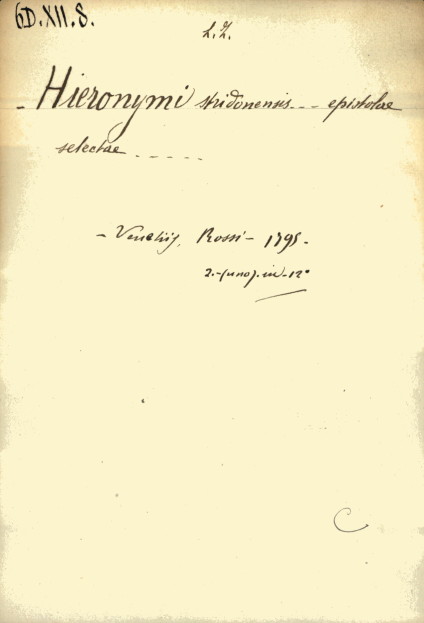 6D.XII.8.
L.Z.
- Hieronymi stridonensis - - - epistolae
selectae - - - - -
- Venetiis, Rossi - 1795 -
2.-(uno)-in-12°
C